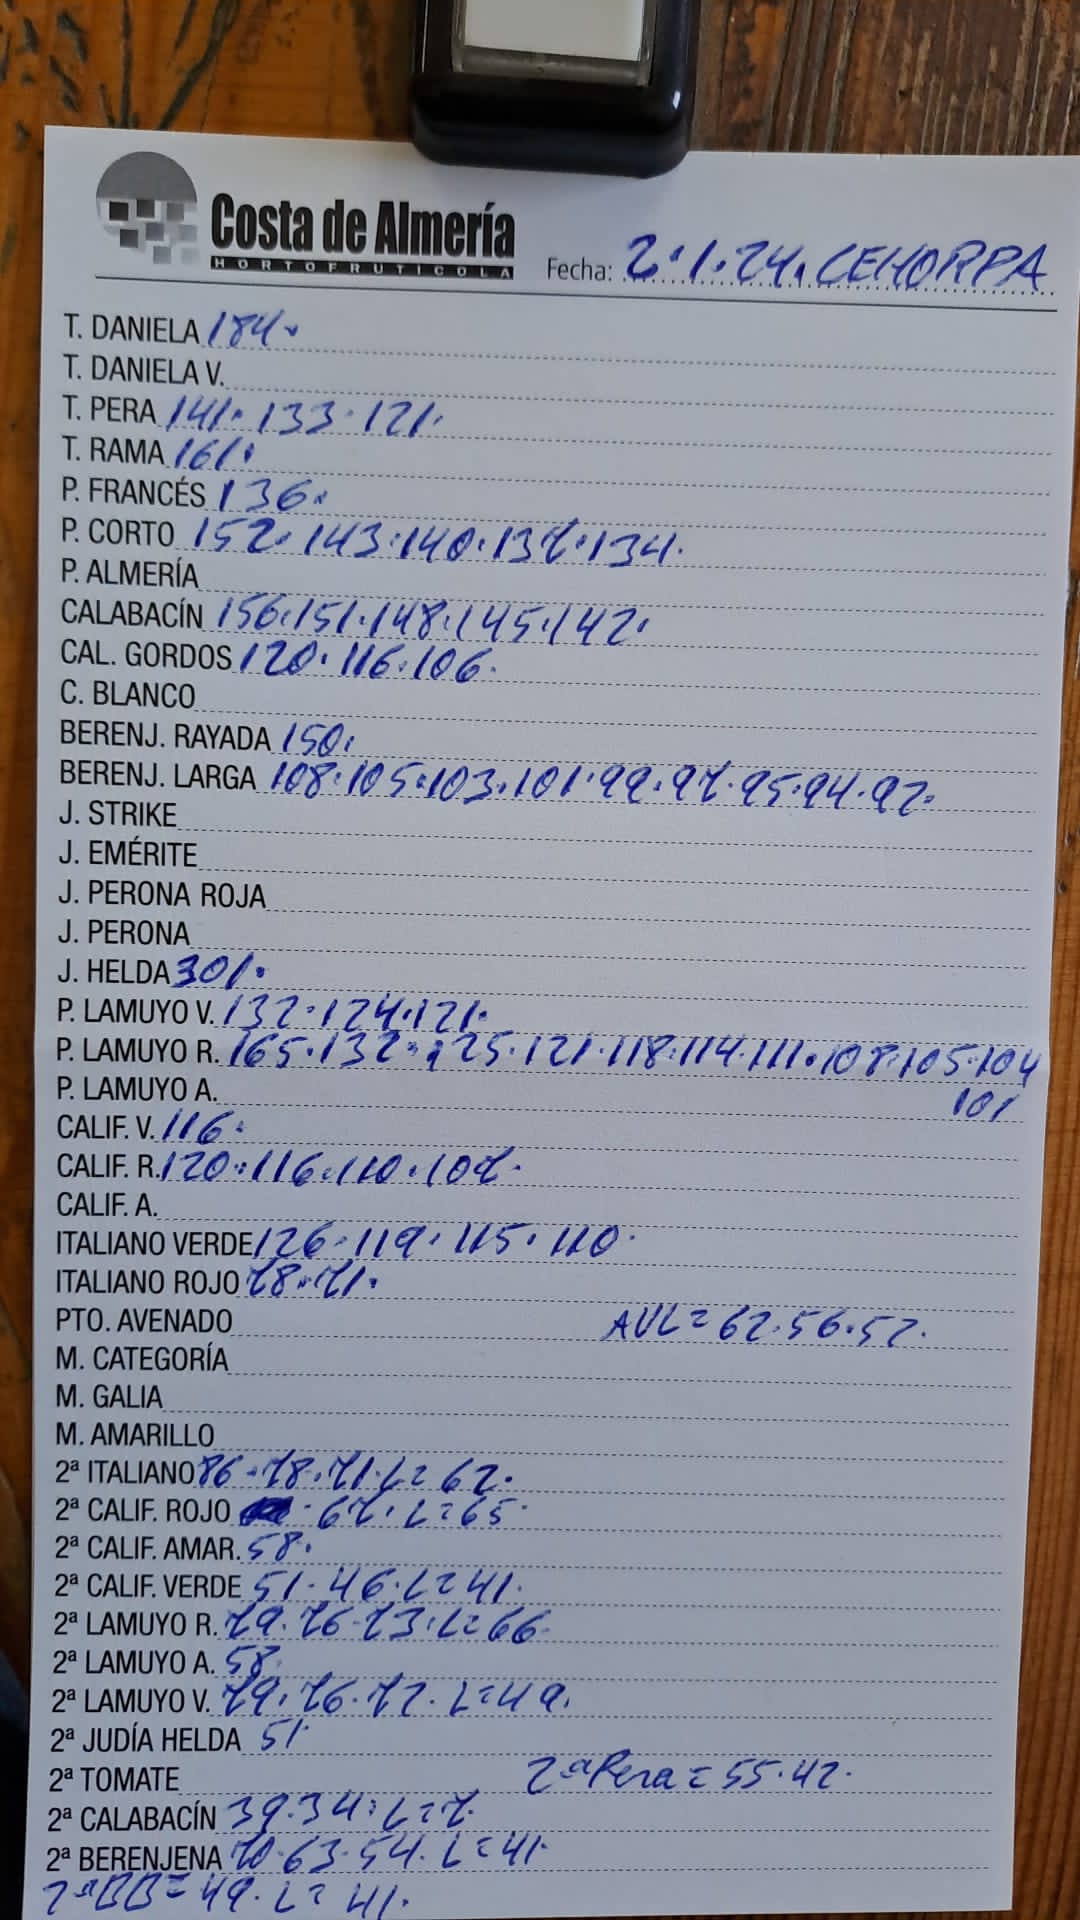 Costa de Almería
HORTOFRUTICOLA
Fecha: 2.1.24. CEHORPA
T. DANIELA 184.
T. DANIELA V.
T. PERA 141. 133. 121.
T. RAMA 161.
P. FRANCÉS 136.
P. CORTO 152. 143. 140. 137. 134.
P. ALMERÍA
CALABACÍN 156. 151. 148. 145. 142.
CAL. GORDOS 120. 116. 106.
C. BLANCO
BERENJ. RAYADA 150.
BERENJ. LARGA 108. 105. 103. 101. 99. 97. 95. 94. 92.
J. STRIKE
J. EMÉRITE
J. PERONA ROJA
J. PERONA
J. HELDA 301.
P. LAMUYO V. 132. 124. 121.
P. LAMUYO R. 165. 132. 125. 121. 118. 114. 111. 108. 105. 104
P. LAMUYO A. 101
CALIF. V. 116.
CALIF. R. 120. 116. 110. 107.
CALIF. A.
ITALIANO VERDE 126. 119. 115. 110.
ITALIANO ROJO 78. 71.
PTO. AVENADO AVL= 62. 56. 52.
M. CATEGORÍA
M. GALIA
M. AMARILLO
2ª ITALIANO 86. 78. 71. L= 62.
2ª CALIF. ROJO 67. L= 65
2ª CALIF. AMAR. 58.
2ª CALIF. VERDE 51. 46. L= 41.
2ª LAMUYO R. 79. 76. 73. L= 66
2ª LAMUYO A. 58.
2ª LAMUYO V. 79. 76. 72. L= 49.
2ª JUDÍA HELDA 51.
2ª TOMATE 2ª Pera = 55. 42.
2ª CALABACÍN 39. 34. L= 7.
2ª BERENJENA 70. 63. 54. L= 41.
2ª BB = 49. L= 41.